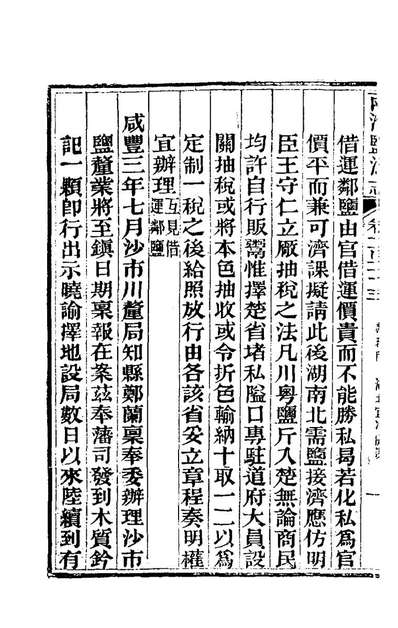 借運鄰鹽由官借運價貴而不能勝私曷若化私爲官
價平而兼可濟課擬請此後湖南北需鹽接濟應仿明
臣王守仁立廠抽稅之法凡川粵鹽斤入楚無論商民
均許自行販鬻惟擇楚省堵私隘口專駐道府大員設
關抽稅或將本色抽收或令折色輸納十取一二以爲
定制一稅之後給照放行由各該省妥立章程奏明權
宜辦理互見借運鄰鹽
咸豐三年七月沙市川釐局知縣鄭蘭稟奉委辦理沙市
鹽釐業將至鎭日期稟報在案茲奉藩司發到木質鈐
記一顆卽行出示曉諭擇地設局數日以來陸續到有